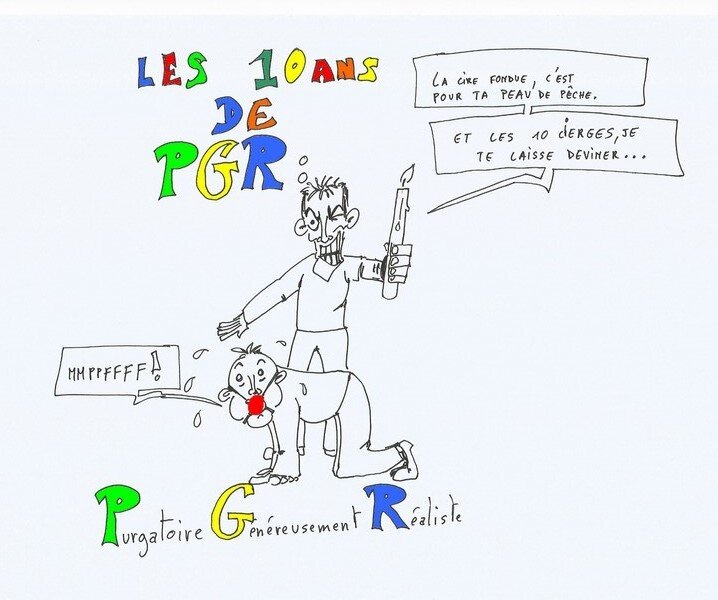 LES 10 ANS
DE
PGR
LA CIRE FONDUE, C'EST
POUR TA PEAU DE PÊCHE.
ET LES 10 CIERGES, JE
TE LAISSE DEVINER...
MMPPFFFF!
Purgatoire Généreusement Réaliste